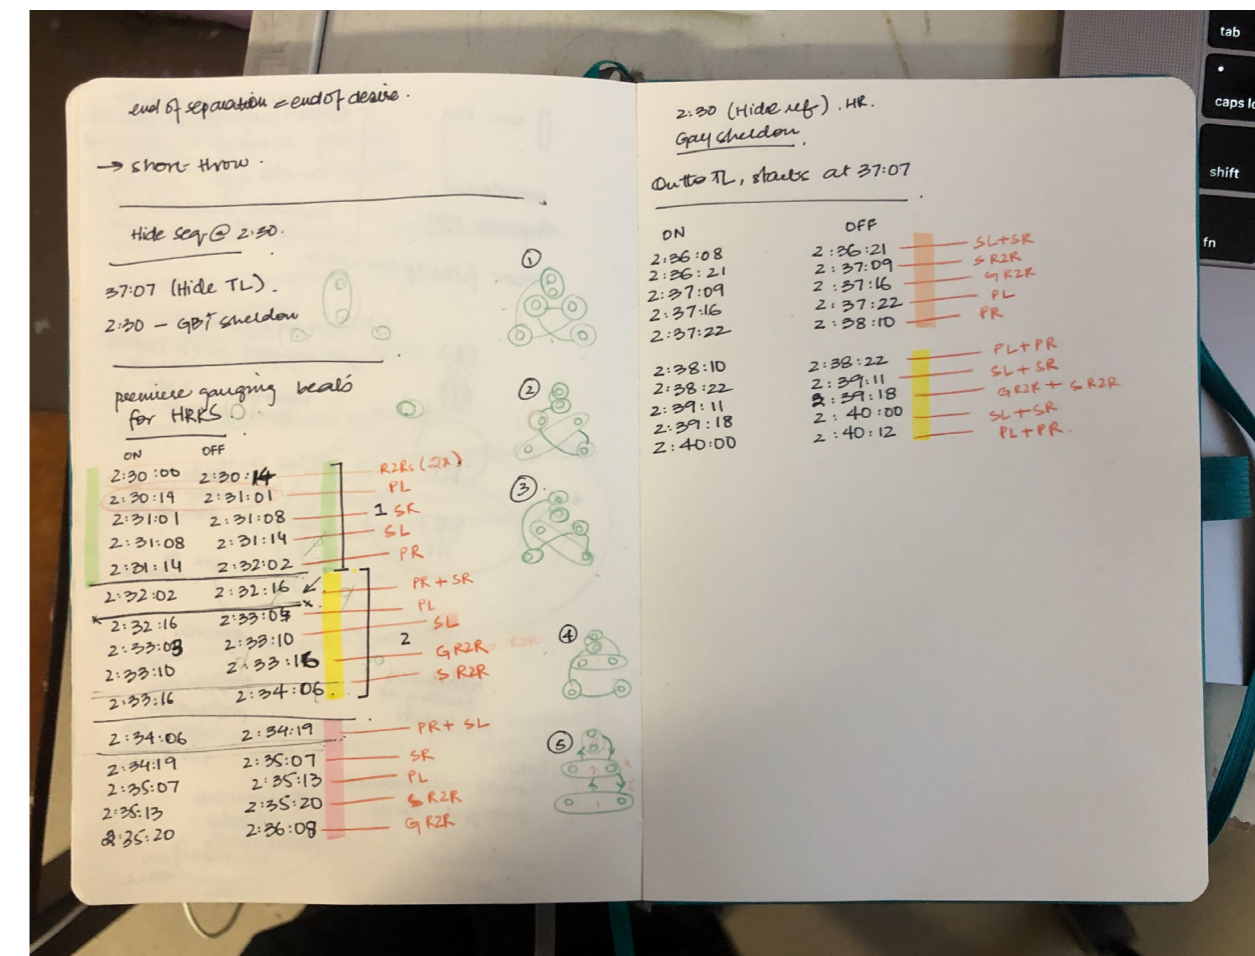 end of separation = end of desire.
→ short throw.
Hide seq @ 2:30.
37:07 (Hide TL).
2:30 – GBT Sheldon
premiere gauging beats
for HRRS
ON OFF
2:30:00 2:30:14 R2Rs (2x)
2:30:14 2:31:01 PL
2:31:01 2:31:08 SR
1
2:31:08 2:31:14 SL
2:31:14 2:32:02 PR
2:32:02 2:32:16 PR + SR
2:32:16 2:33:03 PL
2:33:03 2:33:10 SL
2
2:33:10 2:33:16 GR2R
2:33:16 2:34:06 S R2R
2:34:06 2:34:19 PR + SL
2:34:19 2:35:07 SR
2:35:07 2:35:13 PL
2:35:13 2:35:20 S R2R
2:35:20 2:36:08 GR2R
1
2
3
4
5
2:30 (Hide ref). HR.
Gay Sheldon.
TL, starts at 37:07
ON OFF
2:36:08 2:36:21 SL+SR
2:36:21 2:37:09 S R2R
2:37:09 2:37:16 GR2R
2:37:16 2:37:22 PL
2:37:22 2:38:10 PR
2:38:10 2:38:22 PL+PR
2:38:22 2:39:11 SL+SR
2:39:11 2:39:18 GR2R + S R2R
2:39:18 2:40:00 SL+SR
2:40:00 2:40:12 PL+PR.
tab
caps lo
shift
fn